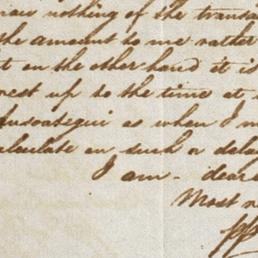 know nothing of the transa
the amount to me rather
t on the other hand it is
rest up to the time at
as when I m
alculate on such a dela
I am - dear
Most